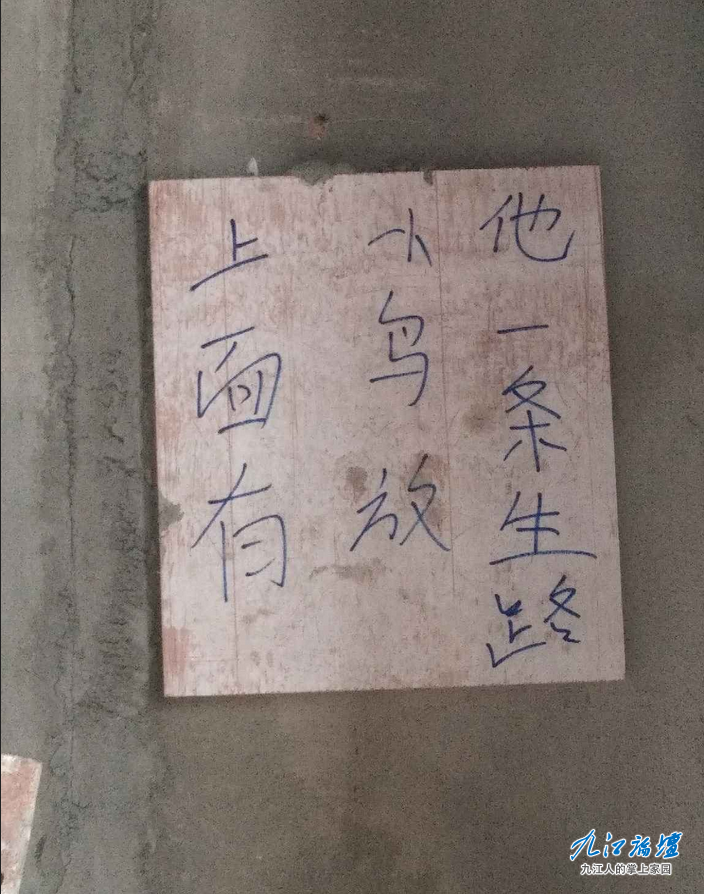 上面有
小鸟放
他一条生路
九江论坛
九江人的掌上家园